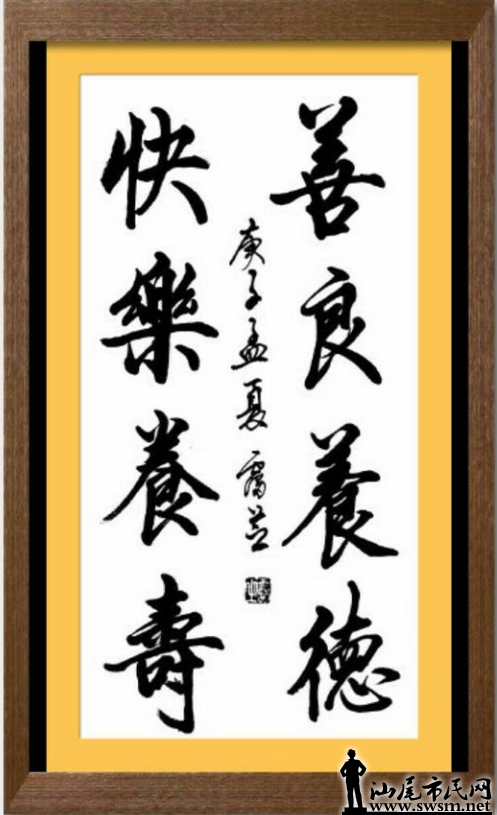 善良養德
快樂養壽
庚子孟夏
汕尾市民网
www.swsm.net